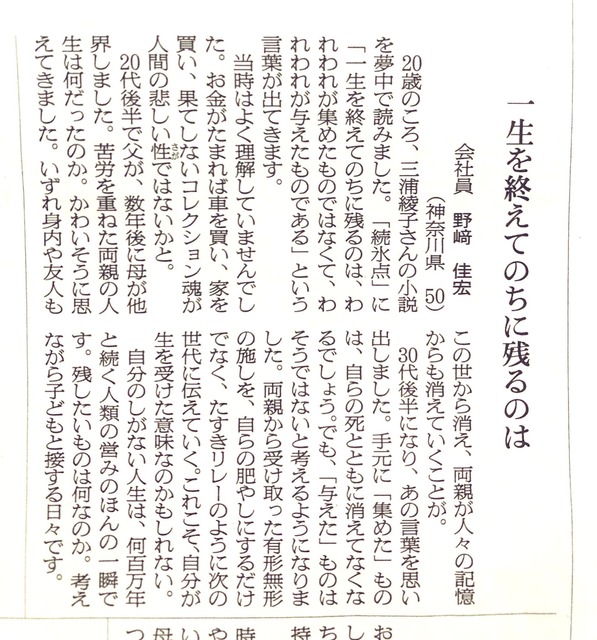 一生を終えてのちに残るのは
会社員　野﨑　佳宏
（神奈川県　50）
20歳のころ、三浦綾子さんの小説
を夢中で読みました。「続氷点」に
「一生を終えてのちに残るのは、わ
れわれが集めたものではなくて、わ
れわれが与えたものである」という
言葉が出てきます。
当時はよく理解していませんでし
た。お金がたまれば車を買い、家を
買い、果てしないコレクション魂が
人間の悲しい性さがではないかと。
20代後半で父が、数年後に母が他
界しました。苦労を重ねた両親の人
生は何だったのか。かわいそうに思
えてきました。いずれ身内や友人も
この世から消え、両親が人々の記憶
からも消えていくことが。
30代後半になり、あの言葉を思い
出しました。手元に「集めた」もの
は、自らの死とともに消えてなくな
るでしょう。でも、「与えた」ものは
そうではないと考えるようになりま
した。両親から受け取った有形無形
の施しを、自らの肥やしにするだけ
でなく、たすきリレーのように次の
世代に伝えていく。これこそ、自分が
生を受けた意味なのかもしれない。
自分のしがない人生は、何百万年
と続く人類の営みのほんの一瞬で
す。残したいものは何なのか。考え
ながら子どもと接する日々です。